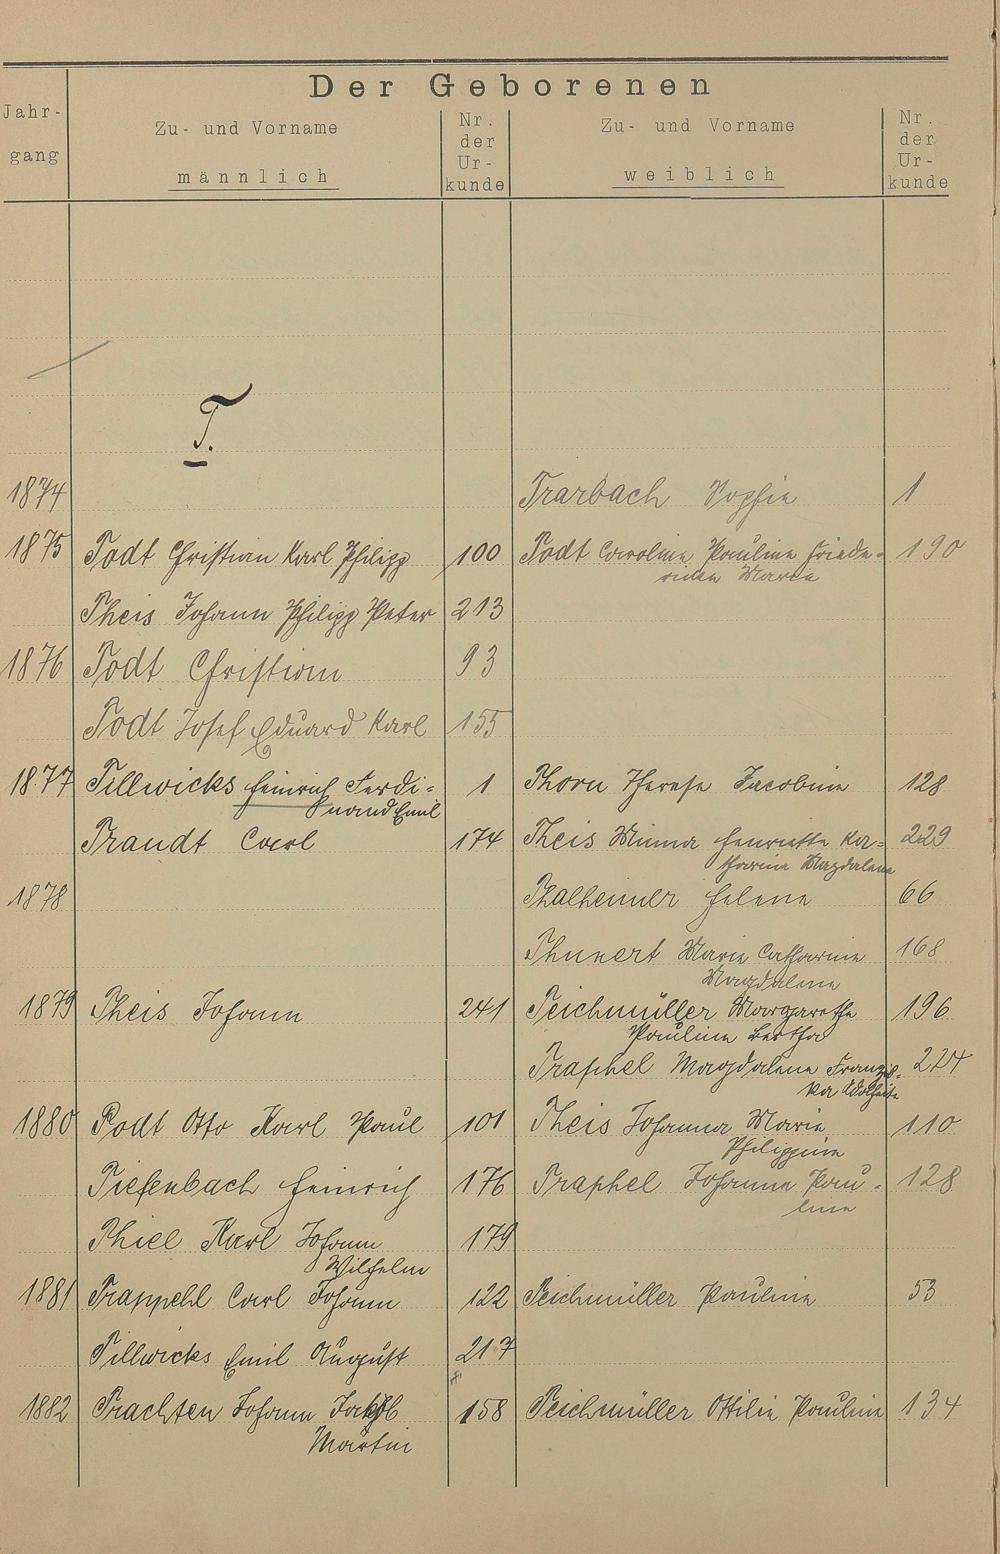 Der Geborenen
Jahr-
gang
Zu- und Vorname
männlich
Nr.
der
Ur-
kunde
Zu- und Vorname
weiblich
Nr.
der
Ur-
kunde
T.
1874 Trarbach Sophie 1
1875 Todt Christian Karl Philipp 100 Todt Caroline Pauline Friede-190
ricke Maria
Theis Johann Philipp Peter 213
1876 Todt Christian 93
Todt Josef Eduard Karl 155
1877 Tillwicks Heinrich Ferdi- 1 Thorn Therese Jacobine 128
nand Emil
Trandt Carl 174 Theis Minna Henriette Ka- 229
tharina Magdalena
1878 Thalheimer Helene 66
Thunert Marie Catharine 168
Magdalene
1879 Theis Johann 241 Teichmüller Margarethe 196
Pauline Bertha
Traphel Magdalene Franzis- 224
ka Adelheite
1880 Todt Otto Karl Paul 101 Theis Johanna Maria 110
Philippine
Tiefenbach Heinrich 176 Traphel Johanna Pau- 128
line
Thiel Karl Johann 179
Wilhelm
1881 Trappehl Carl Johann 122 Teichmüller Pauline 53
Tillwicks Emil August 217
1882 Trachten Johann Jakob 158 Teichmüller Ottilie Pauline 134
Martin